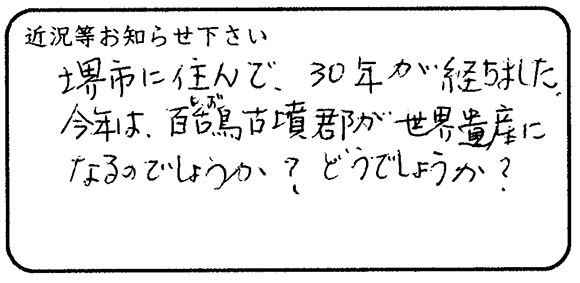 近況等お知らせ下さい
堺市に住んで、30年が経ちました。
今年は、百舌鳥古墳郡が世界遺産に
なるのでしょうか？どうでしょうか？